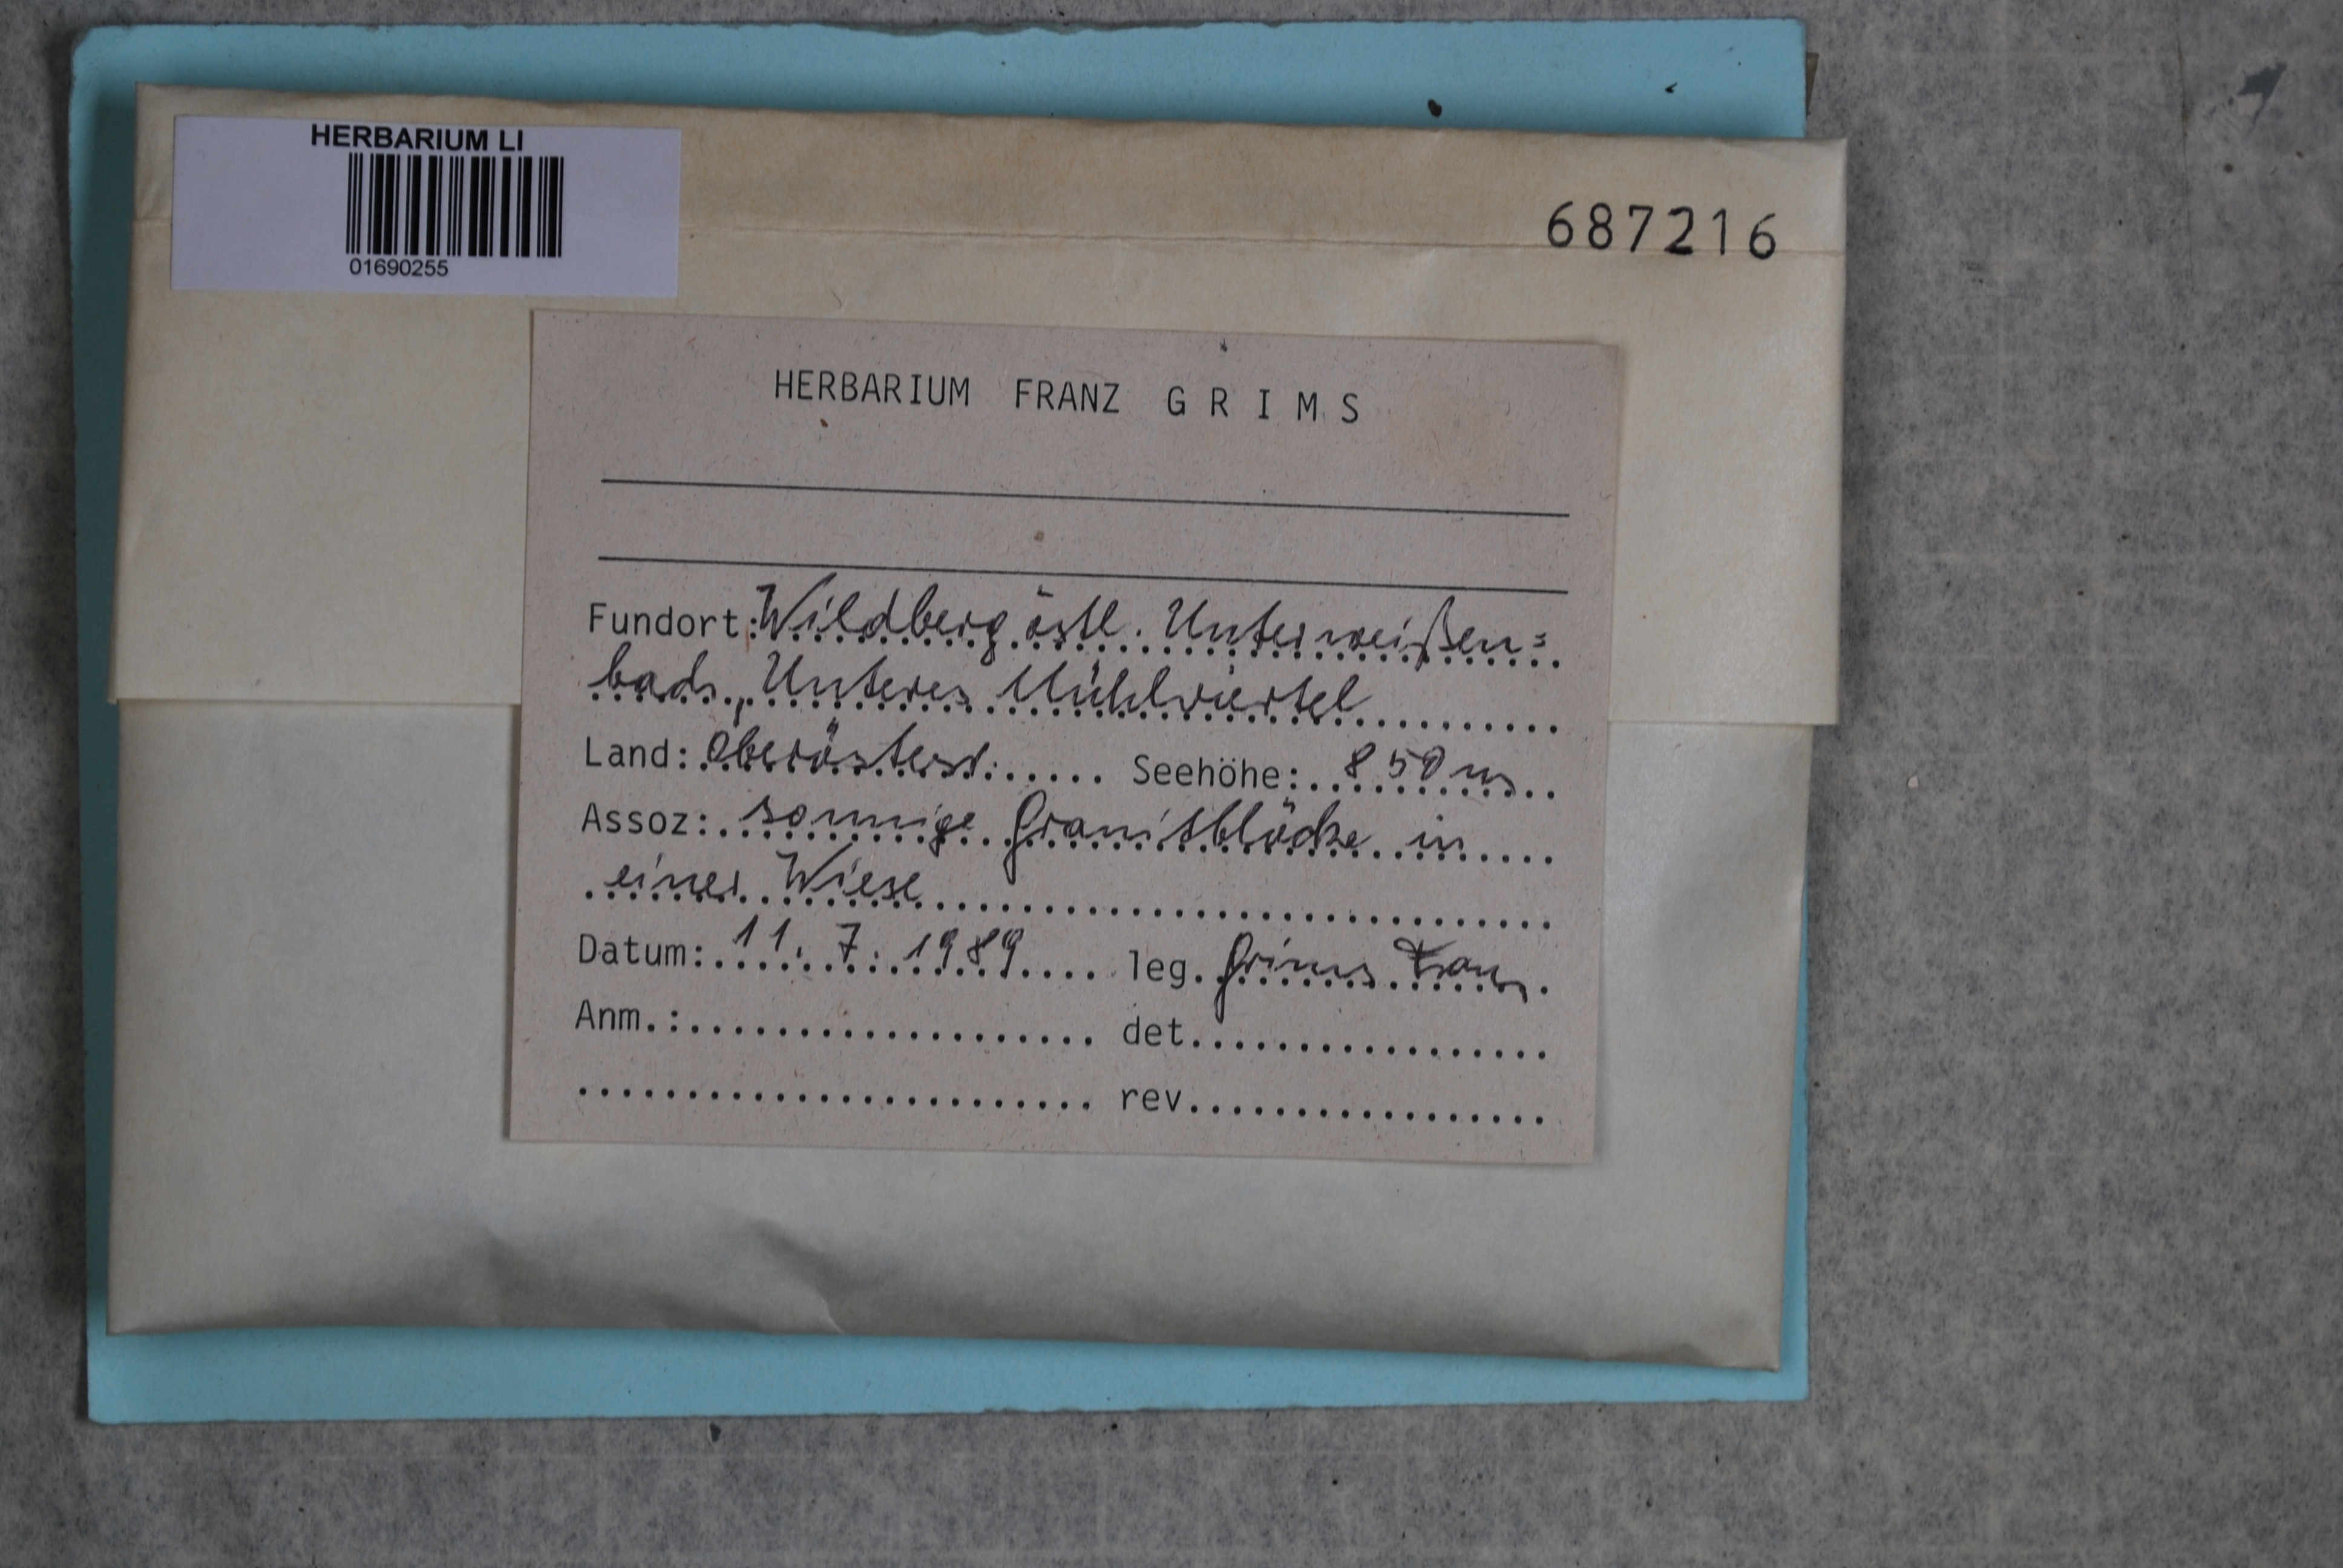 HERBARIUM LI
01690255
687216
HERBARIUM FRANZ GRIMS
Fundort: Wildberg östl. Unterweißen=
bach, Unteres Mühlviertel
Land: Oberösterr. Seehöhe: 850 m
Assoz: sonnige Granitblöcke in
einer Wiese
Datum: 11. 7. 1989 leg. Grims Franz
Anm.: det.
rev.